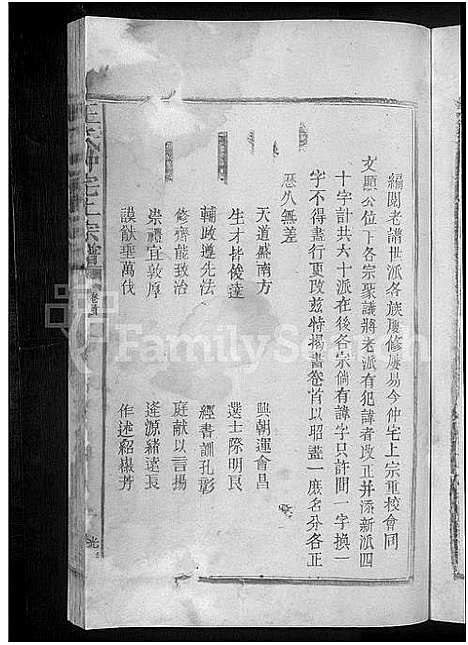 編閱老譜世派各族屢修屢易今仲宅上宗重校會同
文顯公位下各宗眾議將老派有犯諱者改正並添新派四
十字計共六十派在後各宗倘有諱字只許間一字換一
字不得盡行更改茲特揭書卷首以昭畫一庶名分各正
悉久無差
天道盛南方 興朝運會昌
生才皆俊達 選士際明良
輔政遵先法 經書訓孔彰
修齊能致治 庭獻以言揚
崇禮宜敦厚 逢源緒遠長
謨猷垂萬代 作述紹徽芳
仲宅上宗譜
卷首
光
FamilySearch